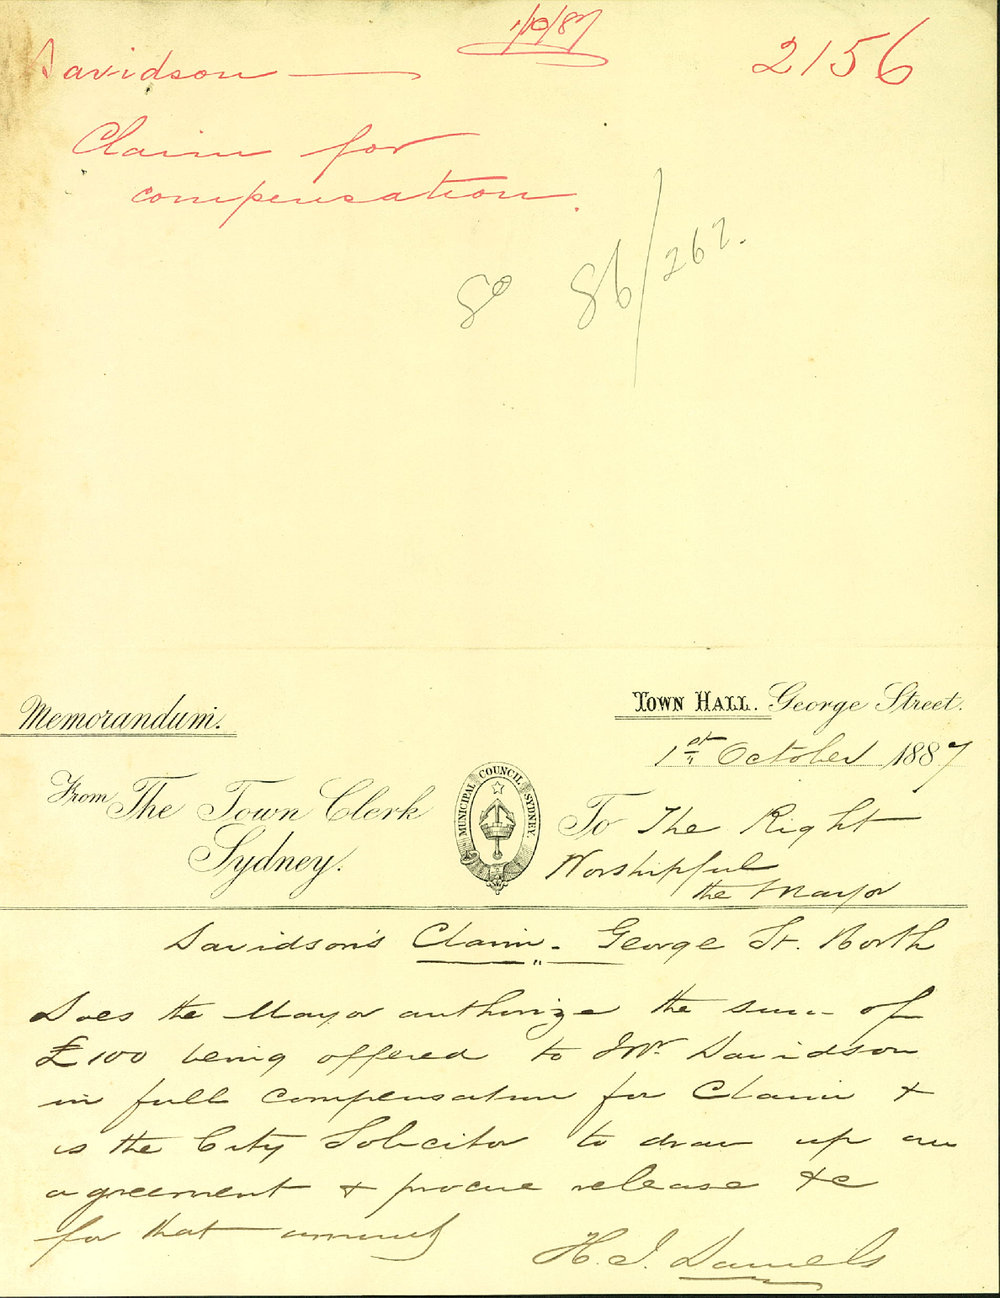 1/10/87
Davidson
2156
Claim for
compensation.
86/262.
Memorandum.
TOWN HALL. George Street.
1st October 1887
From The Town Clerk
Sydney.
MUNICIPAL COUNCIL SYDNEY.
To The Right
Worshipful
the Mayor
Davidson's Claim. George St. North
Does the Mayor authorize the sum of
£100 being offered to Mr Davidson
in full compensation for Claim &
is the City Solicitor to draw up an
agreement & procure release &c
for that amount
H. J. Daniels